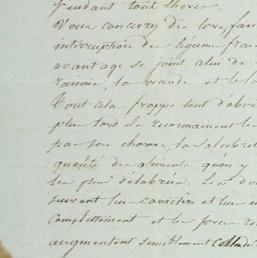 pendant tout l'hiver.
Nous conserv des lors, san
interruption des légumes frai
avantage se joint celui de
raisins, la viande et le la
Tout cela frappe tout d'abor
plus tard ils reconnaissent le
par son charme, la salubrité
qualité des aliments qu'on y
les plus délabrés. Les do
suivant leur caractère et leur
complettement et les forces re
augmentent sensiblement